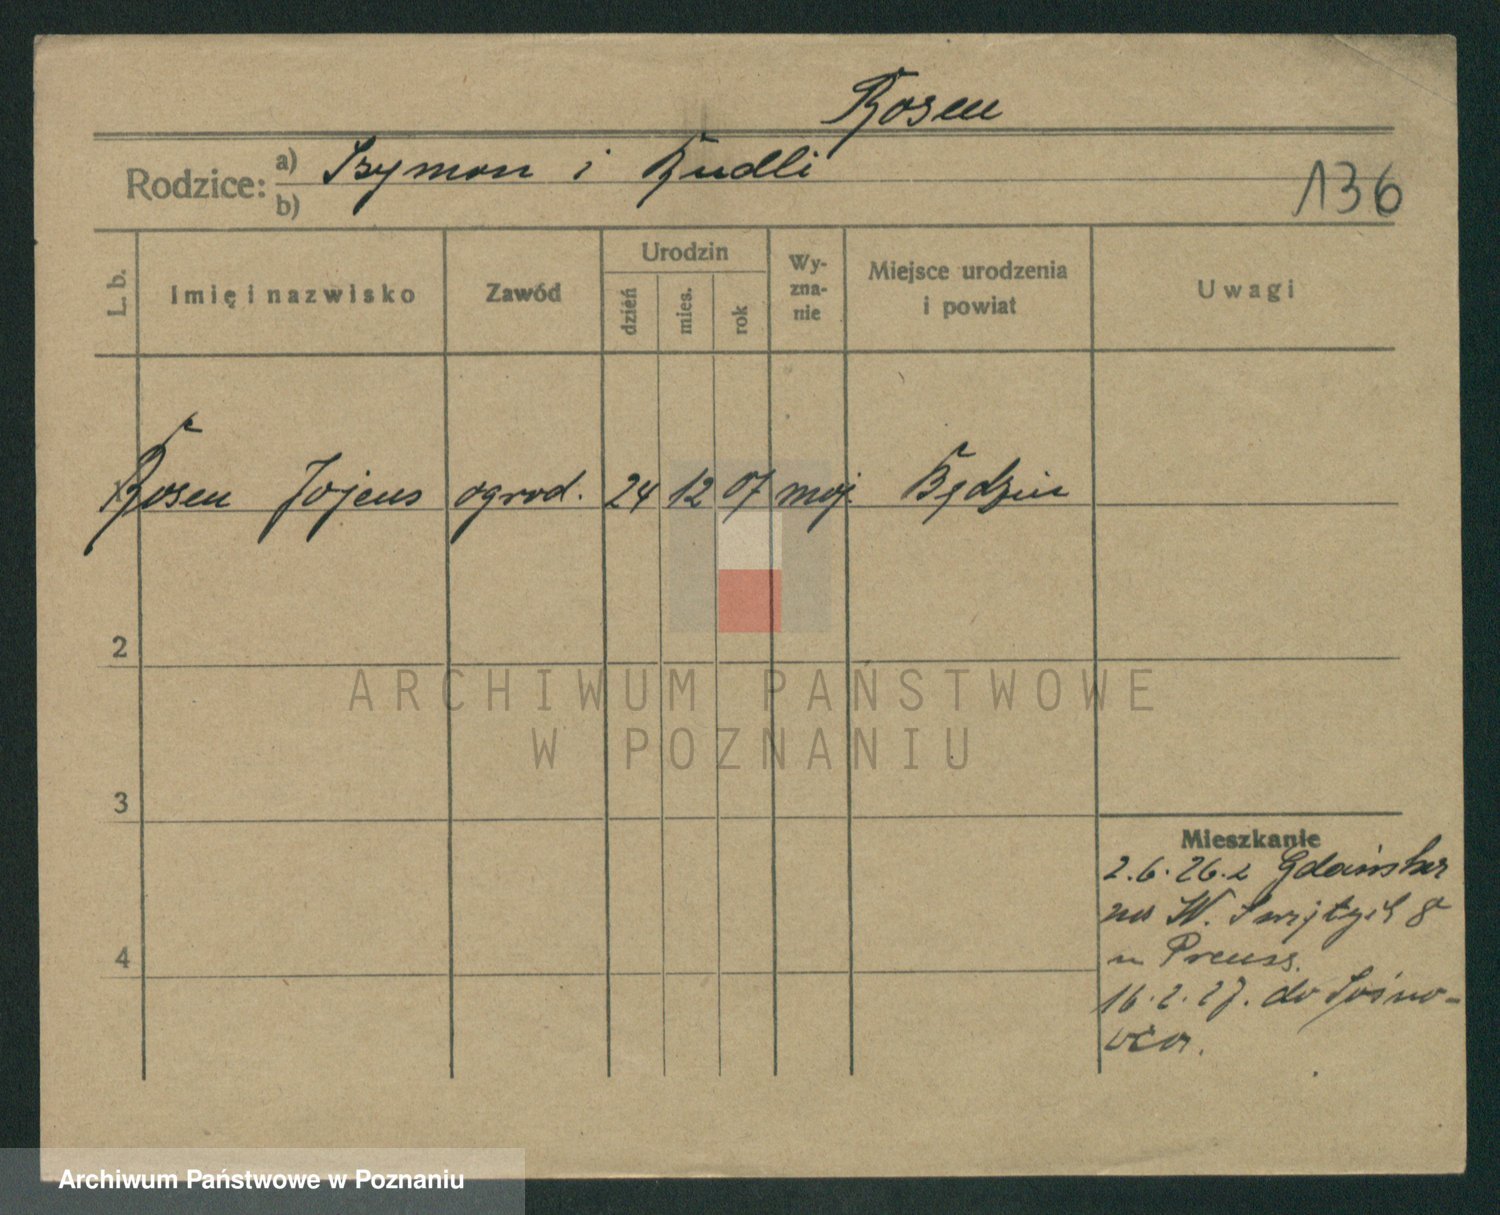 Rosen
Rodzice: a) Szymon i Rudli
b)
136
L. b.
Imię i nazwisko
Zawód
Urodzin
dzień
mies.
rok
Wy-
zna-
nie
Miejsce urodzenia
i powiat
Uwagi
Rosen Jojens ogrod. 24 12 07 moj. Będzin
2
3
4
Mieszkanie
2.6.26. z Gdańska
na W. 8
u Preuss.
16.2.27. do Sosno-
wca.
ARCHIWUM PAŃSTWOWE
W POZNANIU
Archiwum Państwowe w Poznaniu